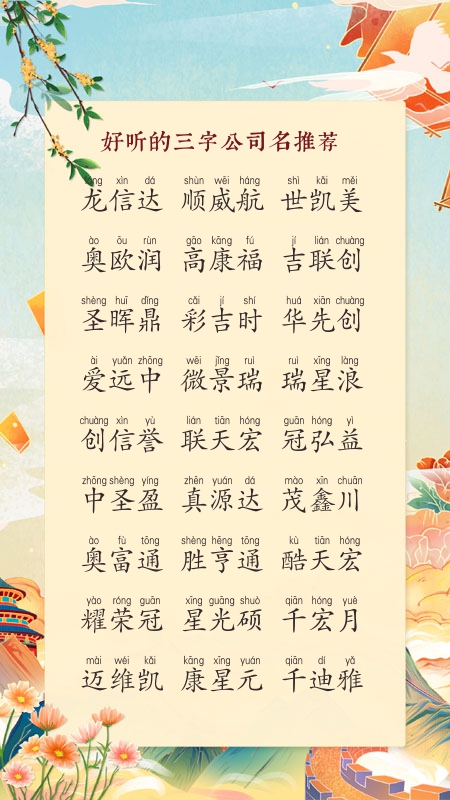 好听的三字公司名推荐
lóng xìn dá shùn wēi háng shì kǎi měi
龙信达 顺威航 世凯美
ào ōu rùn gāo kāng fú jí lián chuàng
奥欧润 高康福 吉联创
shèng huī dǐng cǎi jí shí huá xiān chuàng
圣晖鼎 彩吉时 华先创
ài yuǎn zhōng wēi jǐng ruì ruì xīng làng
爱远中 微景瑞 瑞星浪
chuàng xìn yù lián tiān hóng guān hóng yì
创信誉 联天宏 冠弘益
zhōng shèng yíng zhēn yuán dá mào xīn chuān
中圣盈 真源达 茂鑫川
ào fù tōng shèng hēng tōng kù tiān hóng
奥富通 胜亨通 酷天宏
yào róng guān xīng guāng shuò qiān hóng yuè
耀荣冠 星光硕 千宏月
mài wéi kǎi kāng xīng yuán qiān dí yǎ
迈维凯 康星元 千迪雅